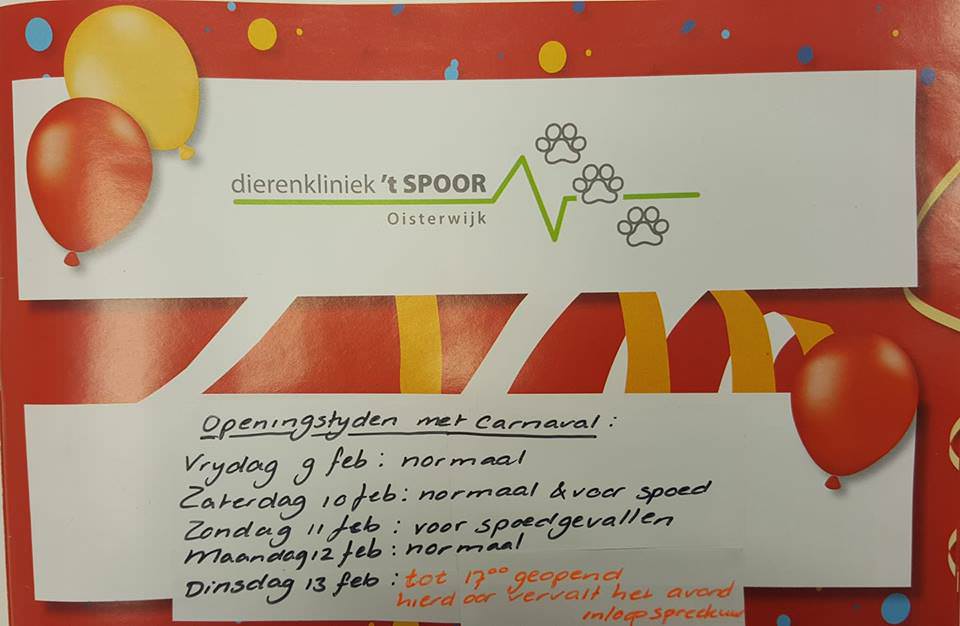 dierenkliniek 't SPOOR
Oisterwijk
Openingstyden met Carnaval:
Vrydag 9 feb: normaal
Zaterdag 10 feb: normaal & voor spoed
Zondag 11 feb: voor spoedgevallen
Maandag 12 feb: normaal
Dinsdag 13 feb: tot 17⁰⁰ geopend
hierdoor vervalt het avond
inloopspreekuur